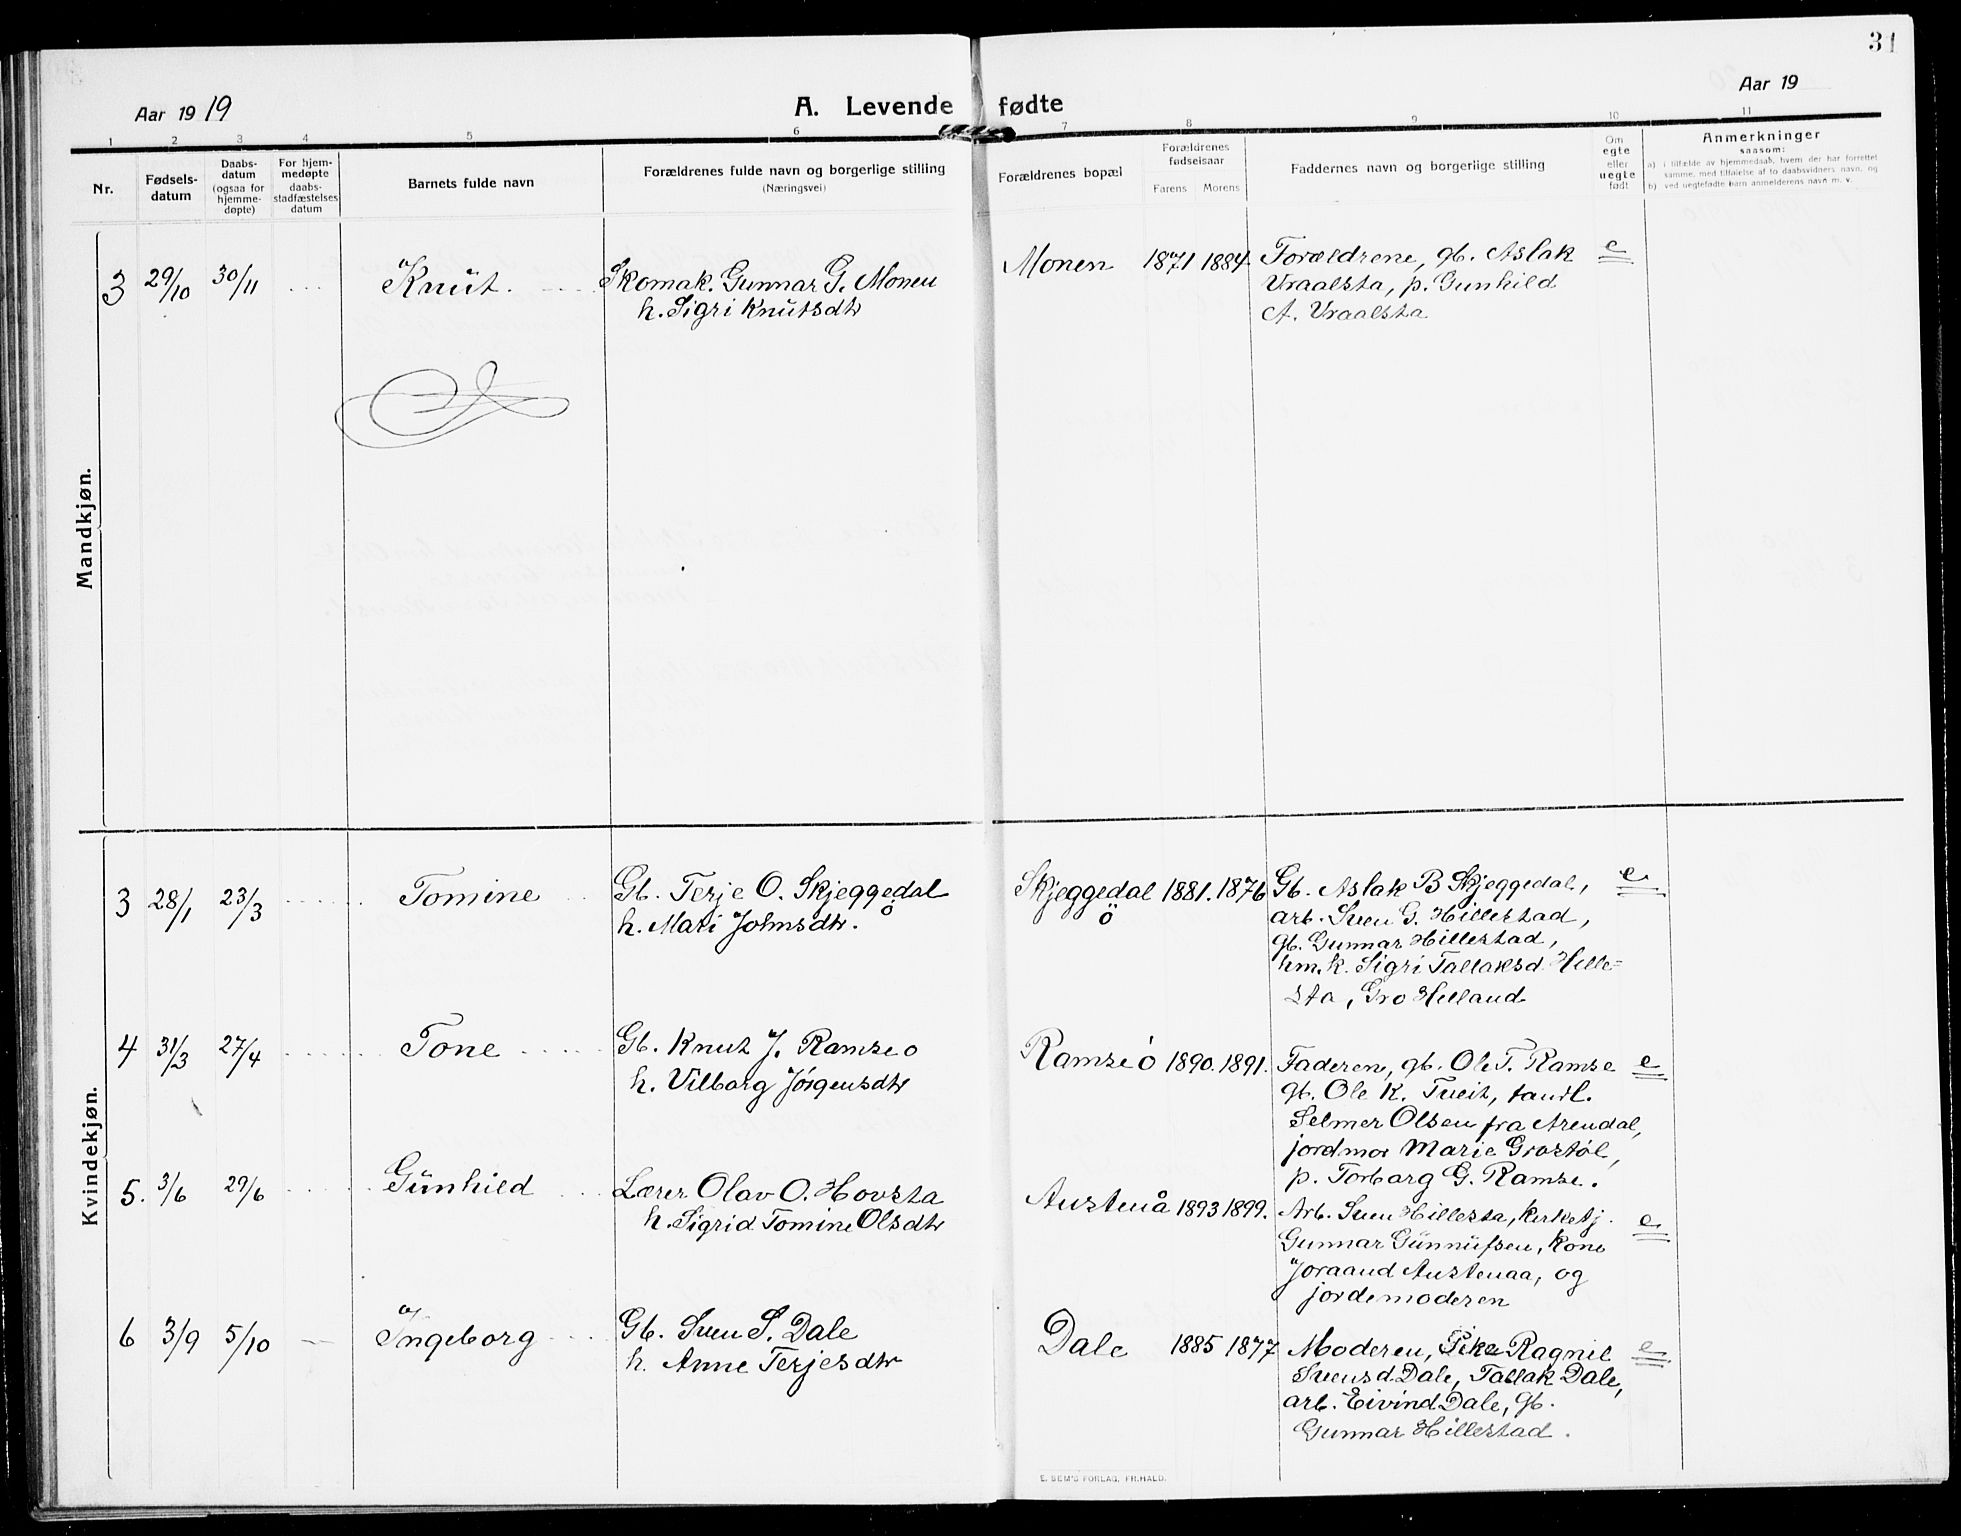 31
Aar 1919
A. Levende fødte
Aar 19
1 2 3 4 5 6 7 8 9 10 11
Nr.
Fødsels-
datum
Daabs-
datum
(ogsaa for
hjemme-
døpte)
For hjem-
medøpte
daabs-
stadfæstelses
datum
Barnets fulde navn
Forældrenes fulde navn og borgerlige stilling
(Næringsvei)
Forældrenes bopæl
Forældrenes
fødselsaar
Farens Morens
Faddernes navn og borgerlige stilling
Om
egte
eller
uegte
født
Anmerkninger
saasom:
a) i tilfælde av hjemmedaab, hvem der har forrettet
samme, med tilføielse af to daabsvidners navn, og
b) ved uegtefødte barn anmelderens navn m. v.
Mandkjøn.
3 29/10 30/11 Knut. Skomak. Gunnar G. Monen
h. Sigri Knutsdtr
Monen 1871 1884 Forældrene, gb. Aslak e
Vraalsta, p. Gunhild
A. Vraalsta
Kvindekjøn.
3 28/1 23/3 Tomine Gb. Terje O. Skjeggedal
h. Mari Johnsdtr. ö
Skjeggedal 1881. 1876
ö
Gb. Aslak B Skjeggedal, e
arb. Sven G. Hillestad,
gb. Gunnar Hillestad,
hm. k. Sigri Tallaksd. Hille=
sta, Gro Helland
4 31/3 27/4 Tone Gb. Knut J. Ramse o
h. Vilborg Jörgensdtr
Ramse ö 1890. 1891.
Faderen, gb. Ole T. Ramse e
gb. Ole K. Tveit, tandl.
Selmer Olsen fra Arendal,
jordmor Marie Grostöl,
p. Torborg G. Ramse.
5. 3/6 29/6 Gunhild Lærer Olav O. Hovsta
h. Sigrid Tomine Olsdtr
Austenå 1893 1899.
Arb. Sven Hillesta, kirketj. e
Gunnar Gunnufsen, kone
Joraand Austenaa, og
jordemoderen
6 3/9 5/10 Ingeborg Gb. Sven S. Dale
h. Anne Terjesdtr
Dale 1885 1877
Moderen, Pike Ragnil e
Svensd. Dale, Tallak Dale,
arb. Eivind Dale, gb.
Gunnar Hillestad.
E. SEM'S FORLAG, FR.HALD.